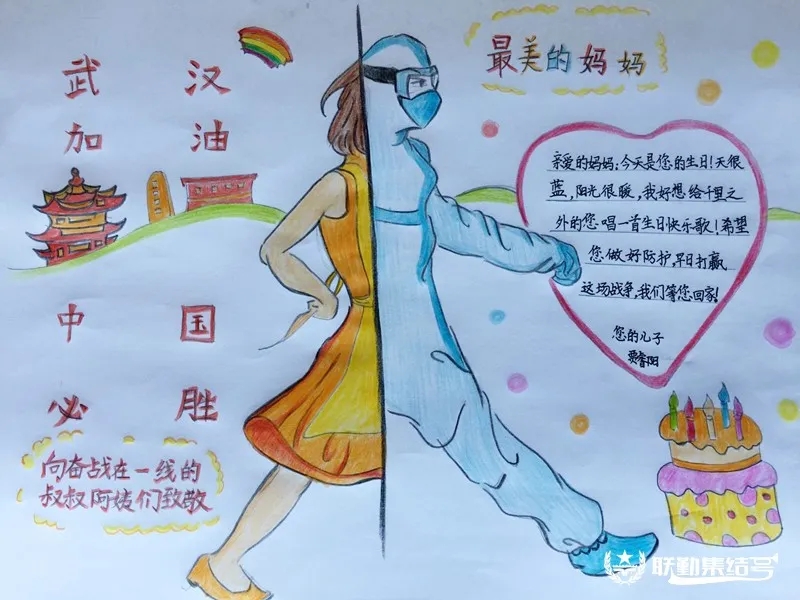 武 汉
加 油
中 国
必 胜
向奋战在一线的
叔叔阿姨们致敬
最美的妈妈
亲爱的妈妈:今天是您的生日!天很
蓝,阳光很暖,我好想给千里之
外的您唱一首生日快乐歌!希望
您做好防护,早日打赢
这场战争,我们等您回家!
您的儿子
贾睿阳
联勤集结号